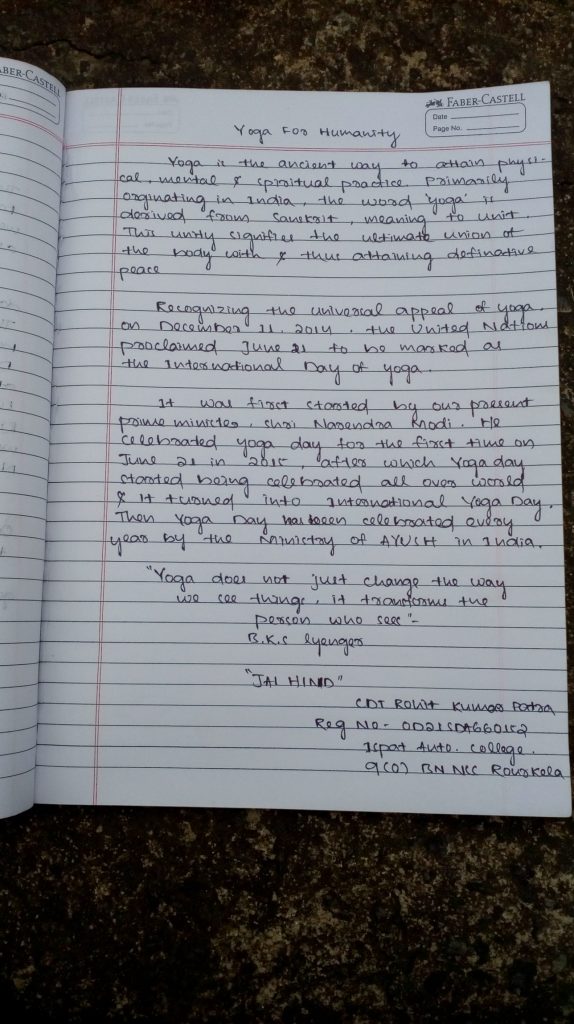 ABER-CASTELL
FABER-CASTELL
Date
Page No.
Yoga For Humanity
Yoga is the ancient way to attain physi-
cal, mental & spiritual practice. Primarily
originating in India, the word 'yoga' is
derived from Sanskrit, meaning to unit.
This unity signifies the ultimate union of
the body with & thus attaining definative
peace
Recognizing the universal appeal of yoga.
on December 11. 2014. the United Nations
proclaimed June 21 to be marked as
the International Day of yoga.
It was first started by our present
prime minister, Shri Narendra Modi. He
celebrated yoga day for the first time on
June 21 in 2015, after which Yoga day
started being celebrated all over world
& it turned into International Yoga Day.
Then Yoga Day has been celebrated every
year by the Ministry of AYUSH in India.
"Yoga does not just change the way
we see things, it transforms the
person who sees"-
B.K.S Iyenger
"JAI HIND"
CDT Rohit Kumar Patra
Reg No- OD21SDA660152
Ispat Auto. College.
9(O) BN NCC Rourkela